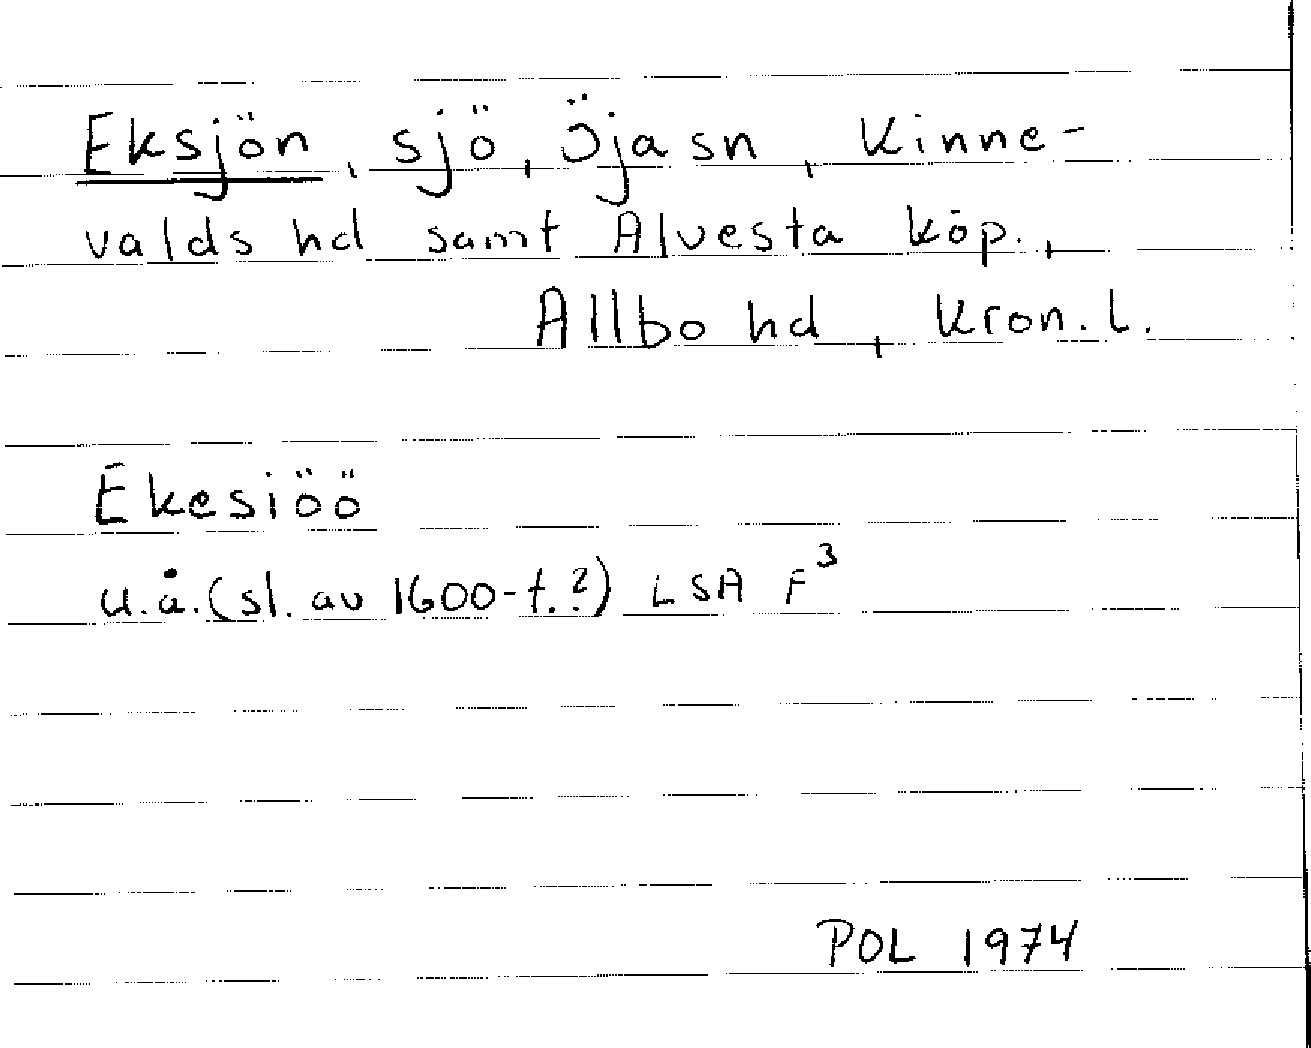 Eksjön, sjö, Öjasn, Kinne-
valds hd samt Alvesta köp.,
Allbo hd, Kron. l.
Ekesiöö
u.å. (sl. av 1600-t.?) LSA F³
POL 1974